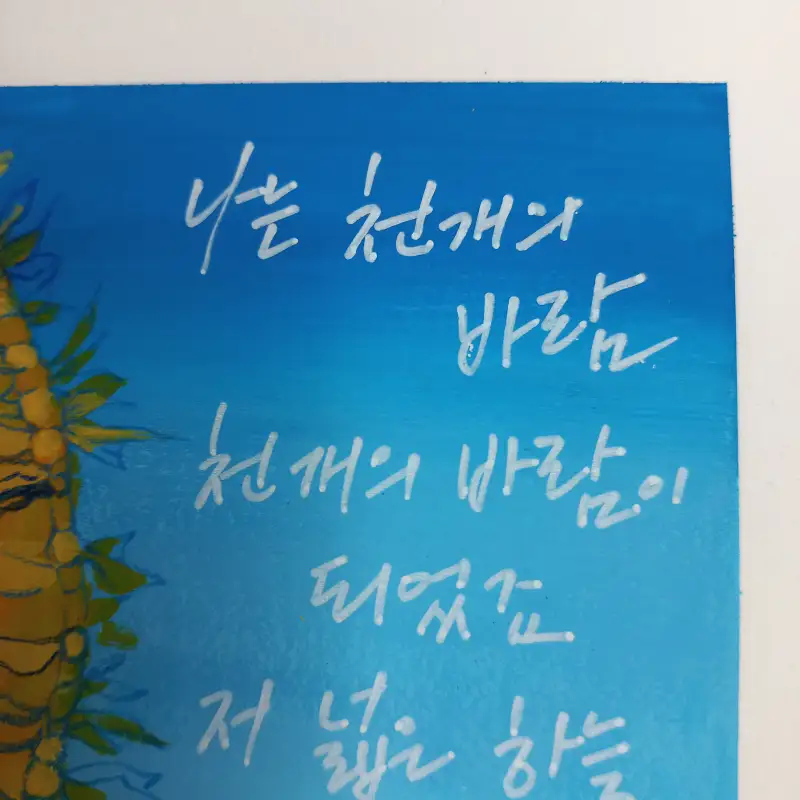 나는 천개의
바람
천개의 바람이
되었죠
저 넓은 하늘